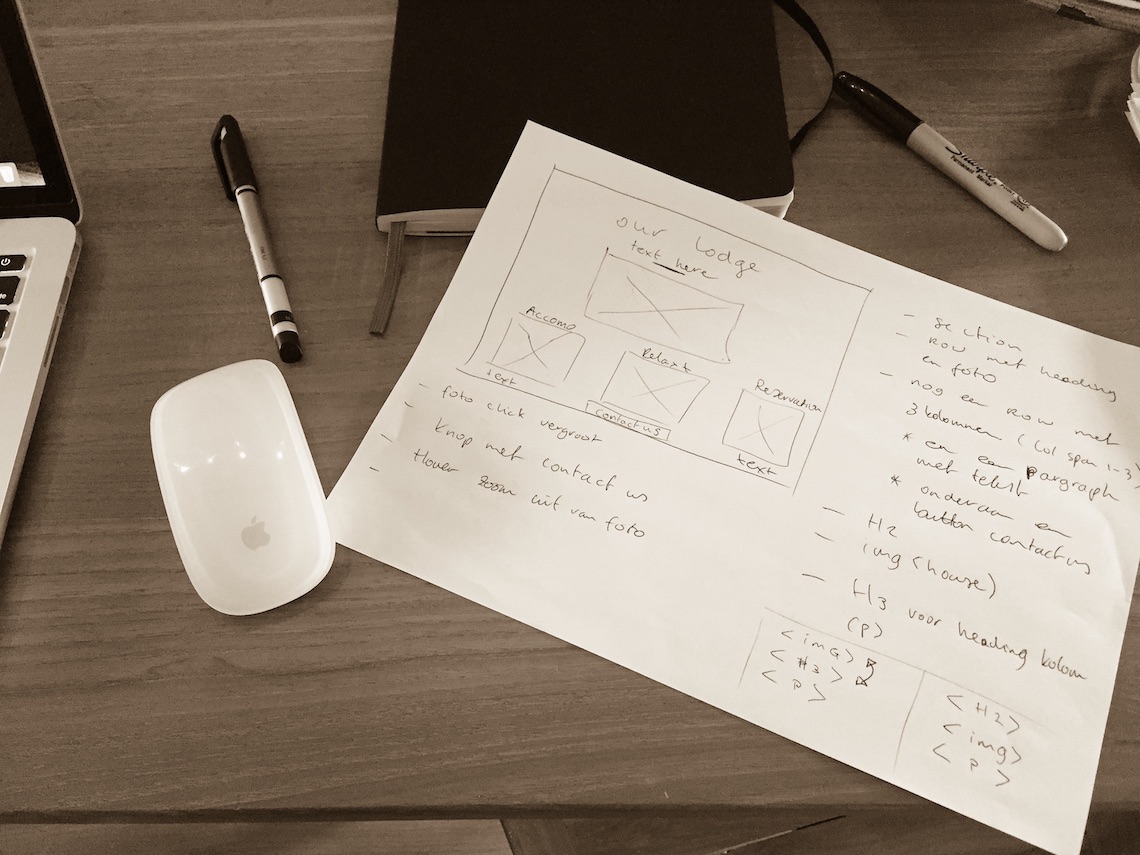 our lodge
text here
Accomo
text
Relaxt
contact us
Reservation
text
- foto click vergroot
- Knop met contact us
- Hover zoom uit van foto
-
- section
- row met heading
en foto
- nog een row met
3 kolommen (col span 1-3)
* en een paragraph
met tekst
* onderaan een
button contact us
- H2
- img (house)
- H3 voor heading kolom
(P)
<img>
<H3>
<P>
<H2>
<img>
<P>
Sharpie
Permanent Marker